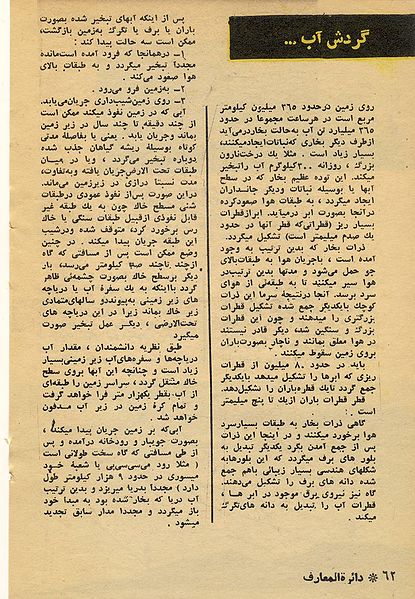 گردش آب ...
روی زمین درحدود ۳۶۵ میلیون کیلومتر
مربع است در هرساعت مجموعا در حدود
۳۶۵ میلیارد تن آب به‌حالت بخاردرمی‌آید
ازطرف دیگر بخاری که‌نباتات‌ایجادمیکنند،
بسیار زیاد است . مثلا یك درخت‌نارون
بزرگ ، روزانه ۳۰۰کیلوگرم آب راتبخیر
میکند. این توده عظیم بخار که در سطح
آبها یا بوسیله نباتات ودیگر جانــداران
ایجاد میگردد ، به طبقات هوا صعودکرده
درآنجا بصورت ابر درمیآید. ابرازقطرات
بسیار ریز (قطراتی‌که قطر آنها در حدود
یك صدم میلیمتر است) تشکیل میگردد.
ذرات بخار که بدین ترتیب به وجود
آمده است ، باجریان هوا به طبقات‌بالای
جو حمل می‌شود و مدتها بدین ترتیب‌در
هوا سیر میکنند تا به طبقه‌ئی از هوای
سرد برسد. آنجا درنتیجهٔ سرما این ذرات
کوچك بایکدیگر جمع شده تشکیل قطرات
بزرگتری را میدهند و چون این قطرات
بزرگ و سنگین شد، دیگر قادر نیستند
در هوا معلق بمانند و ناچار بصورت‌باران
بروی زمین سقوط میکنند.
باید در حدود ۸۰ میلیون از قطرات
ریزی که ابرها را تشکیل میدهد بایکدیگر
جمع گردد تایك قطره‌باران را تشکیل‌دهد.
قطر قطرات باران ازیك تا پنج میلیمتر
است .
گاهی ذرات بخار به طبقات بسیارسرد
هوا برخورد میکنند و در آنجا این ذرات
پس از جمع آمدن بگرد یکدیگر تبدیل به
بلور های برف میگردد که این بلورهابه
شکلهای هندسی بسیار زیبائی باهم جمع
شده دانه های برف را تشکیل می‌دهند.
گاه نیز نیروی برق موجود در ابر هـا ،
قطرات آب را تبدیل به دانه های‌تگرگ
میکند .
پس از اینکه آبهای تبخیر شده بصورت
باران یا برف یا تگرگ به‌زمین بازگشت،
ممکن است سه حالت پیدا کند :
۱ــ درهمانجا که فرود آمده است‌مانده
مجددا تبخیر میگردد و به طبقات بالای
هوا صعود می‌کند .
۲ــ به‌زمین فرو می‌رود .
۳ــ روی زمین‌شیب‌داری جریان‌می‌یابد.
آبی که در زمین نفوذ میکند ممکن است
از چند دقیقه تا چند سال در زیر زمین
بماند وجریان یابد . یعنی یا بفاصلهٔ مدتی
کوتاه بوسیلهٔ ریشه گیاهان جذب شده
دوباره تبخیر می‌گردد ، ویا در میـان
طبقات تحت الارض‌جریان یافته وبه‌تفاوت،
مدت نسبتا درازی در زیرزمین می‌ماند.
دراین صورت پس‌از نفوذ عمودی درطبقات
شنی سطح خاك چون به یك طبقه غیر
قابل نفوذی ازقبیل طبقات سنگی یا خاك
رس برخورد کرد، متوقف شده ودرشیب
این طبقه جریان پیدا میکند . در چنین
وضع ممکن است پس از مسافتی که گاه
ازچند تاچند صد کیلومتر می‌رسد، بار
دیگر برسطح خاك بصورت چشمه‌ئی ظاهر
گردد یااینکه به یك سفرهٔ آب یا دریاچه
های زیر زمینی به‌پیونددو سالهای‌متمادی
زیر خاك بماند زیرا در این دریاچه های
تحت‌الارضی ، دیگر عمل تبخیر صورت
نمیگیرد
طبق نظریه دانشمندان ، مقدار آب
دریاچه‌ها و سفره‌های‌آب زیر زمینی‌بسیار
زیاد است و چنانچه این آبها بروی سطح
خاك منتقل گردد ، سراسر زمین را طبقه‌ای
از آب بقطر یکهزار متر فرا خواهد گرفت
و تمام کرهٔ زمین در زیر آب مـدفون
خواهد شد .
آبی‌که بر زمین جریان پیدا میکند ،
بصورت جویبار و رودخانه درآمده و پس
از طی مسافتی که گاه سخت طولانی است
( مثلا رود می‌سی‌سی‌پی با شعبهٔ خود
میسوری در حدود ۹ هزار کیلومتر طول
دارد ) مجددا بدریا میریزد و بدین ترتیب
آب دریا که بخار شده بود به مبدا خود
باز میگردد و مجددا مدار سابق تجدید
میشود .
۶۲ * دائرة‌المعارف